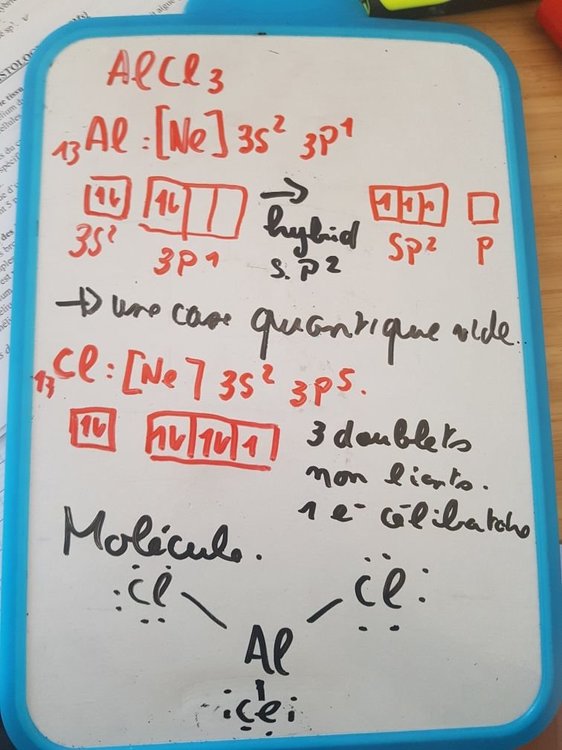 AlCl3
13Al : [Ne] 3s² 3p¹
1↓ 1↓ → 1 1 1
3s² 3p¹ hybrid sp² p
s.p²
→ une case quantique vide.
13Cl : [Ne] 3s² 3p⁵.
1↓ 1↓ 1↓ 1 3 doublets
non liants.
1 e⁻ célibataire
Molécule.
Cl Cl
Al
Cl